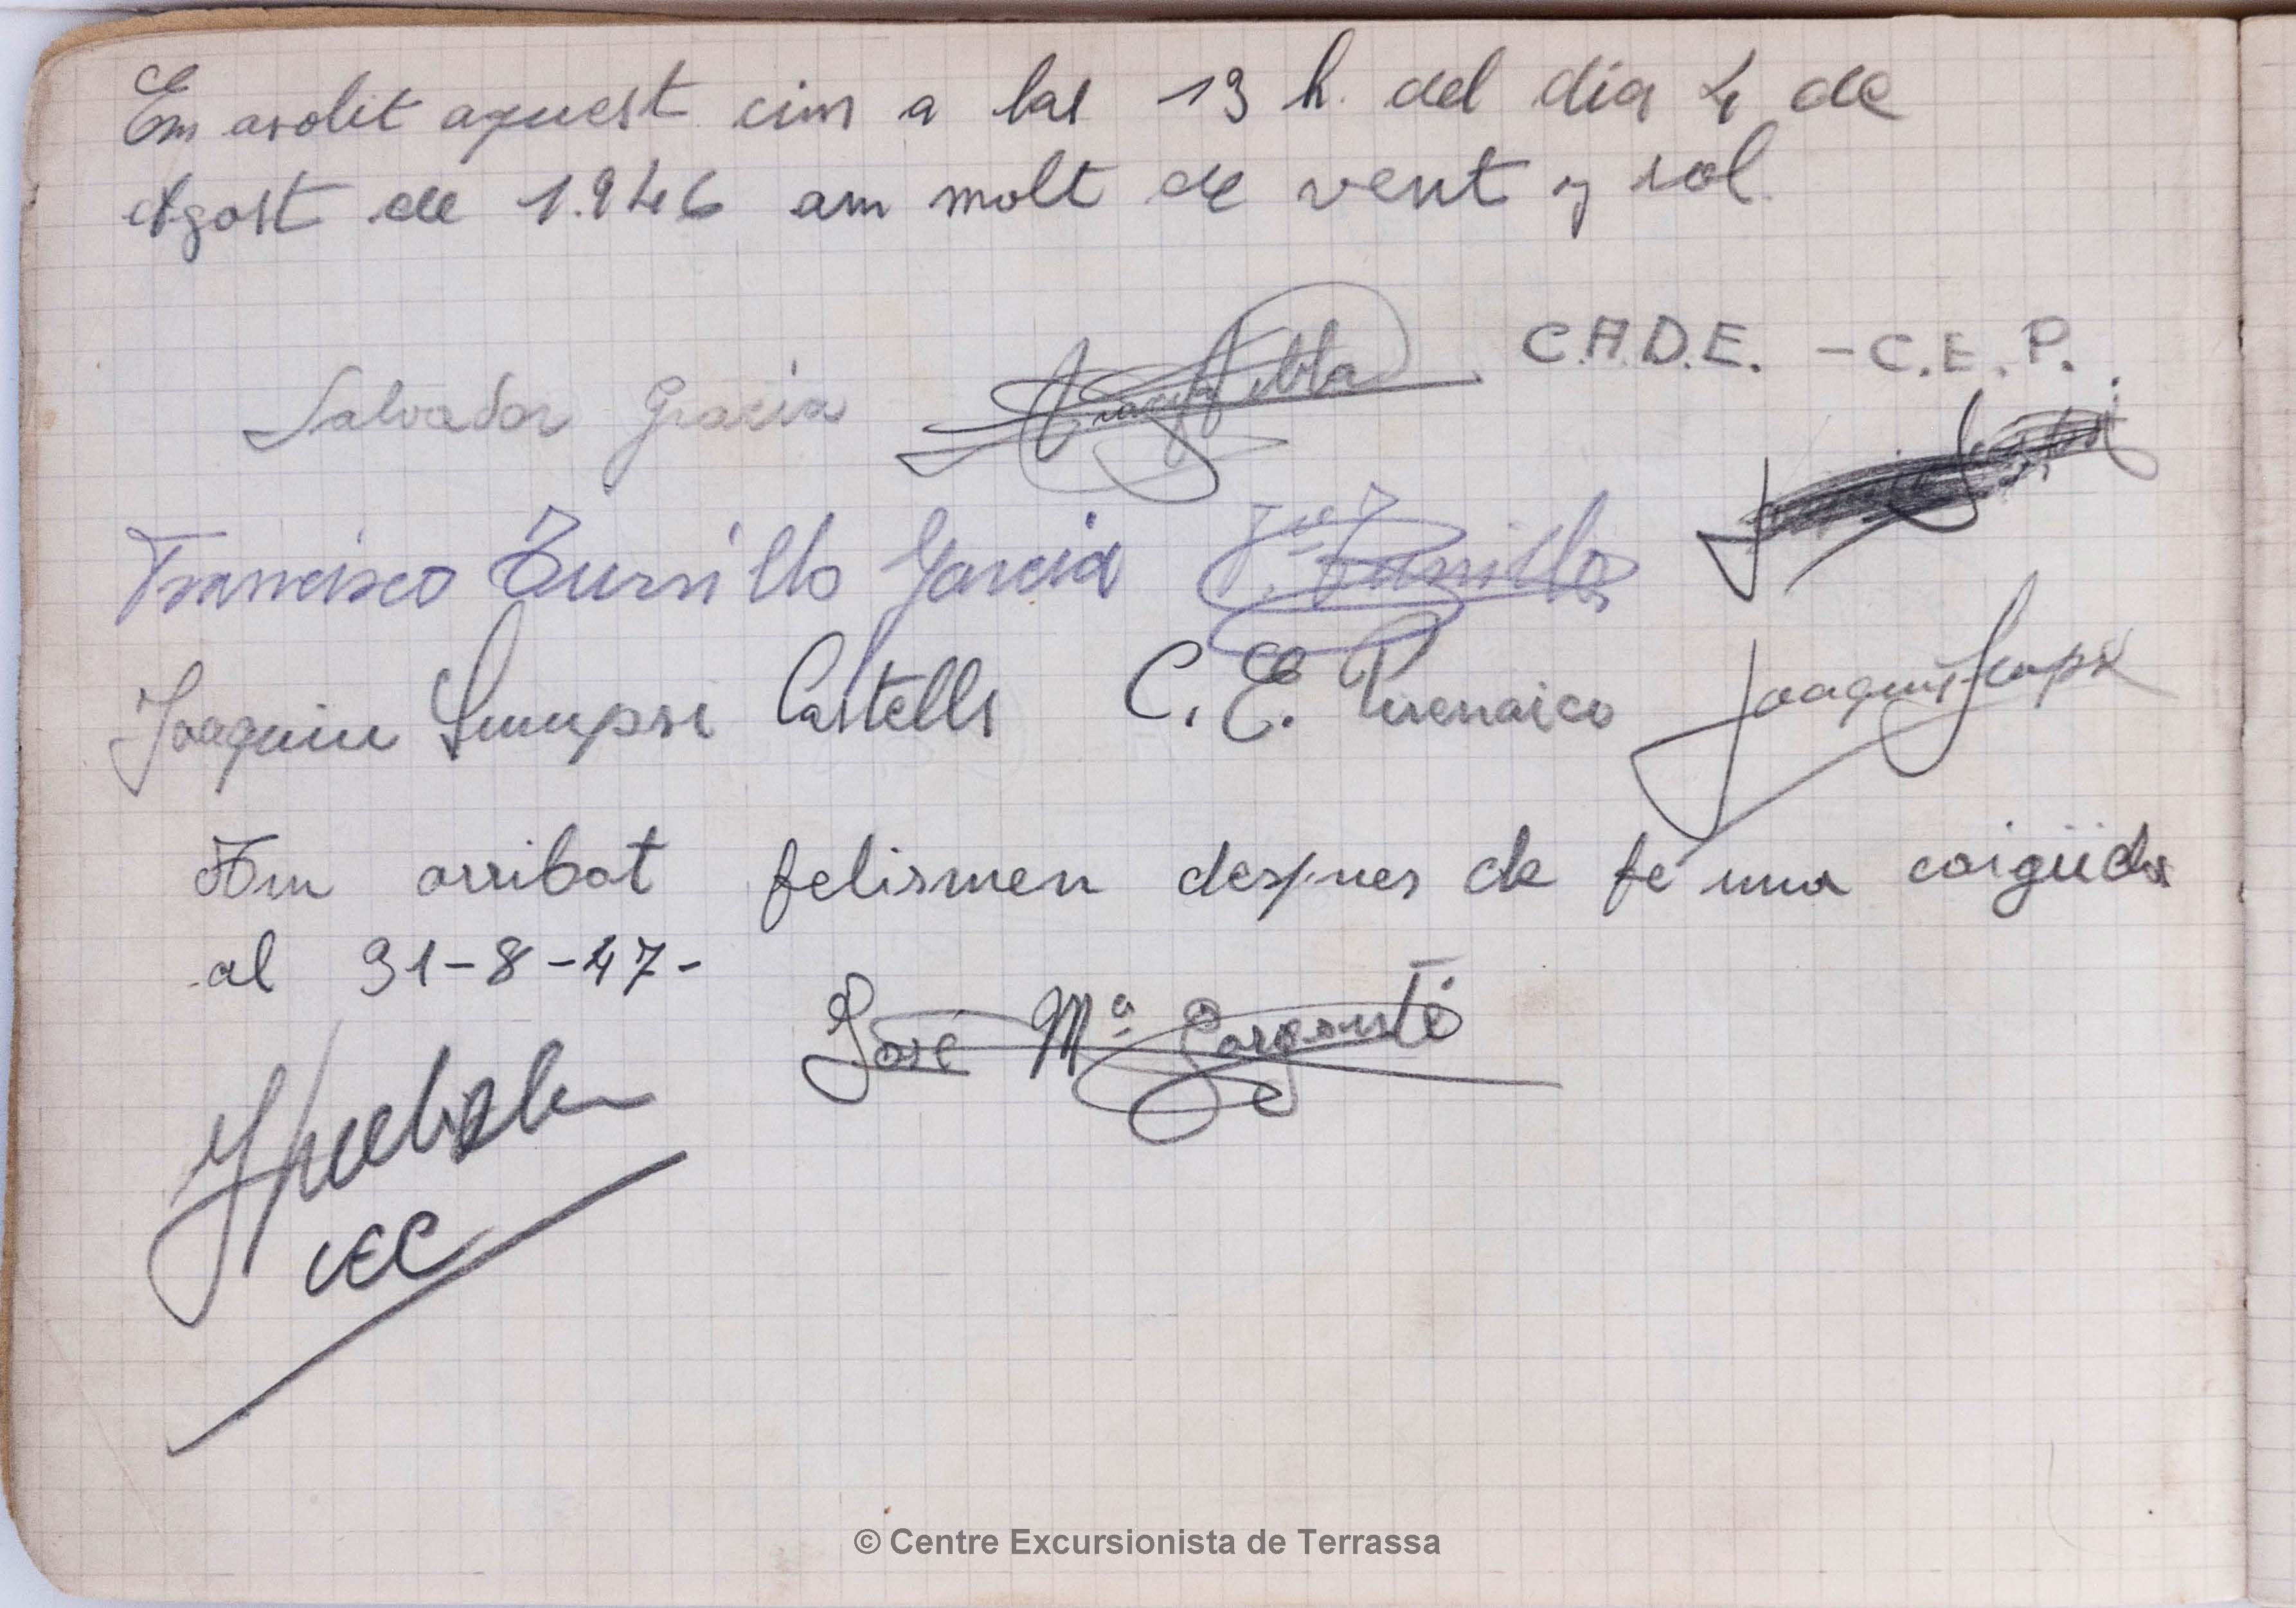 Em asolit aquest cim a las 13 h. del dia 4 de
Agost de 1.946 am molt de vent y sol.
C.A.D.E. - C.E.P.
Salvador Gracia
Francisco Turrillo Garcia Fco Turrillo
Joaquin Sumpsi Castells C. E. Pirenaico Joaquin Sumpsi
Am arribat felismen despues de fe una caigüda
al 31-8-47-
José Mª
CEC
© Centre Excursionista de Terrassa